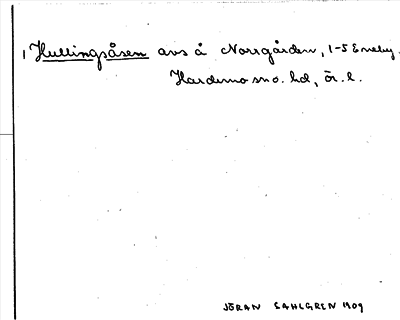 1 Hullingsåsen avs å Norrgården, 1-5 Eneby.
Hardemo sn o. hd, ör. l.
JÖRAN SAHLGREN 1909